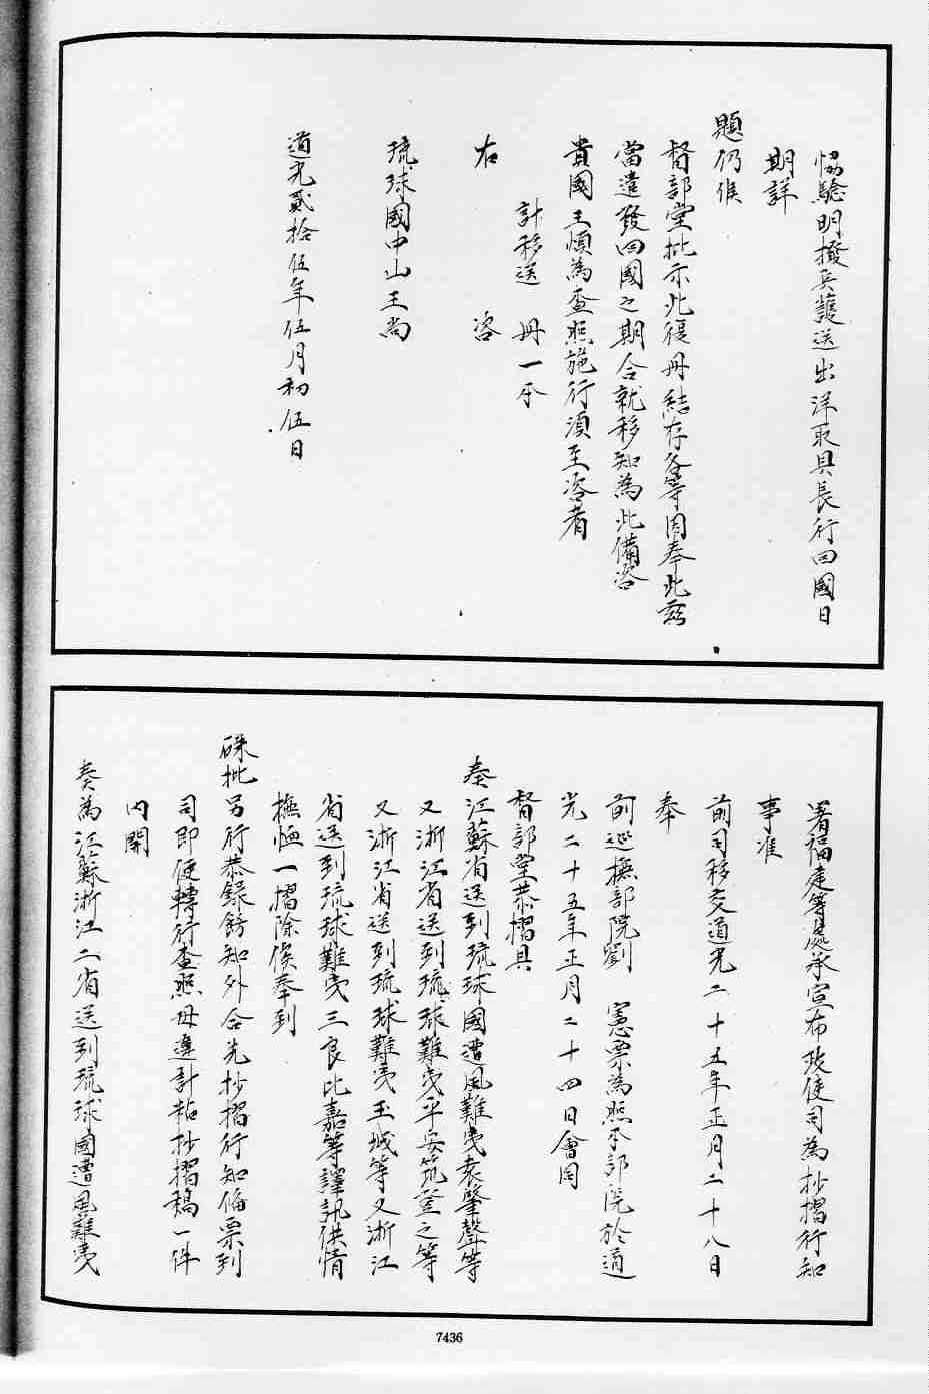 協驗明撥兵護送出洋取具長行回國日
期詳
題仍候
督部堂批示此復冊結存各等因奉此茲
當遣發回國之期合就移知為此備咨
貴國王煩為查照施行須至咨者
計移送 冊一本
右 咨
琉球國中山王尚
道光貳拾伍年伍月初伍日
署福建等處承宣布政使司為抄摺行知
事准
前司移交道光二十五年正月二十八日
奉
前巡撫部院劉 憲票為照本部院於道
光二十五年正月二十四日會同
督部堂恭摺具
奏江蘇省送到琉球國遭風難夷袁肇聲等
又浙江省送到琉球難夷平安筑登之等
又浙江省送到琉球難夷玉城等又浙江
省送到琉球難夷三良比嘉等譯訊供情
撫恤一摺除俟奉到
硃批另行恭錄飭知外合先抄摺行知備票到
司即便轉行查照毋違計粘抄摺稿一件
內開
奏為江蘇浙江二省送到琉球國遭風難夷
7436